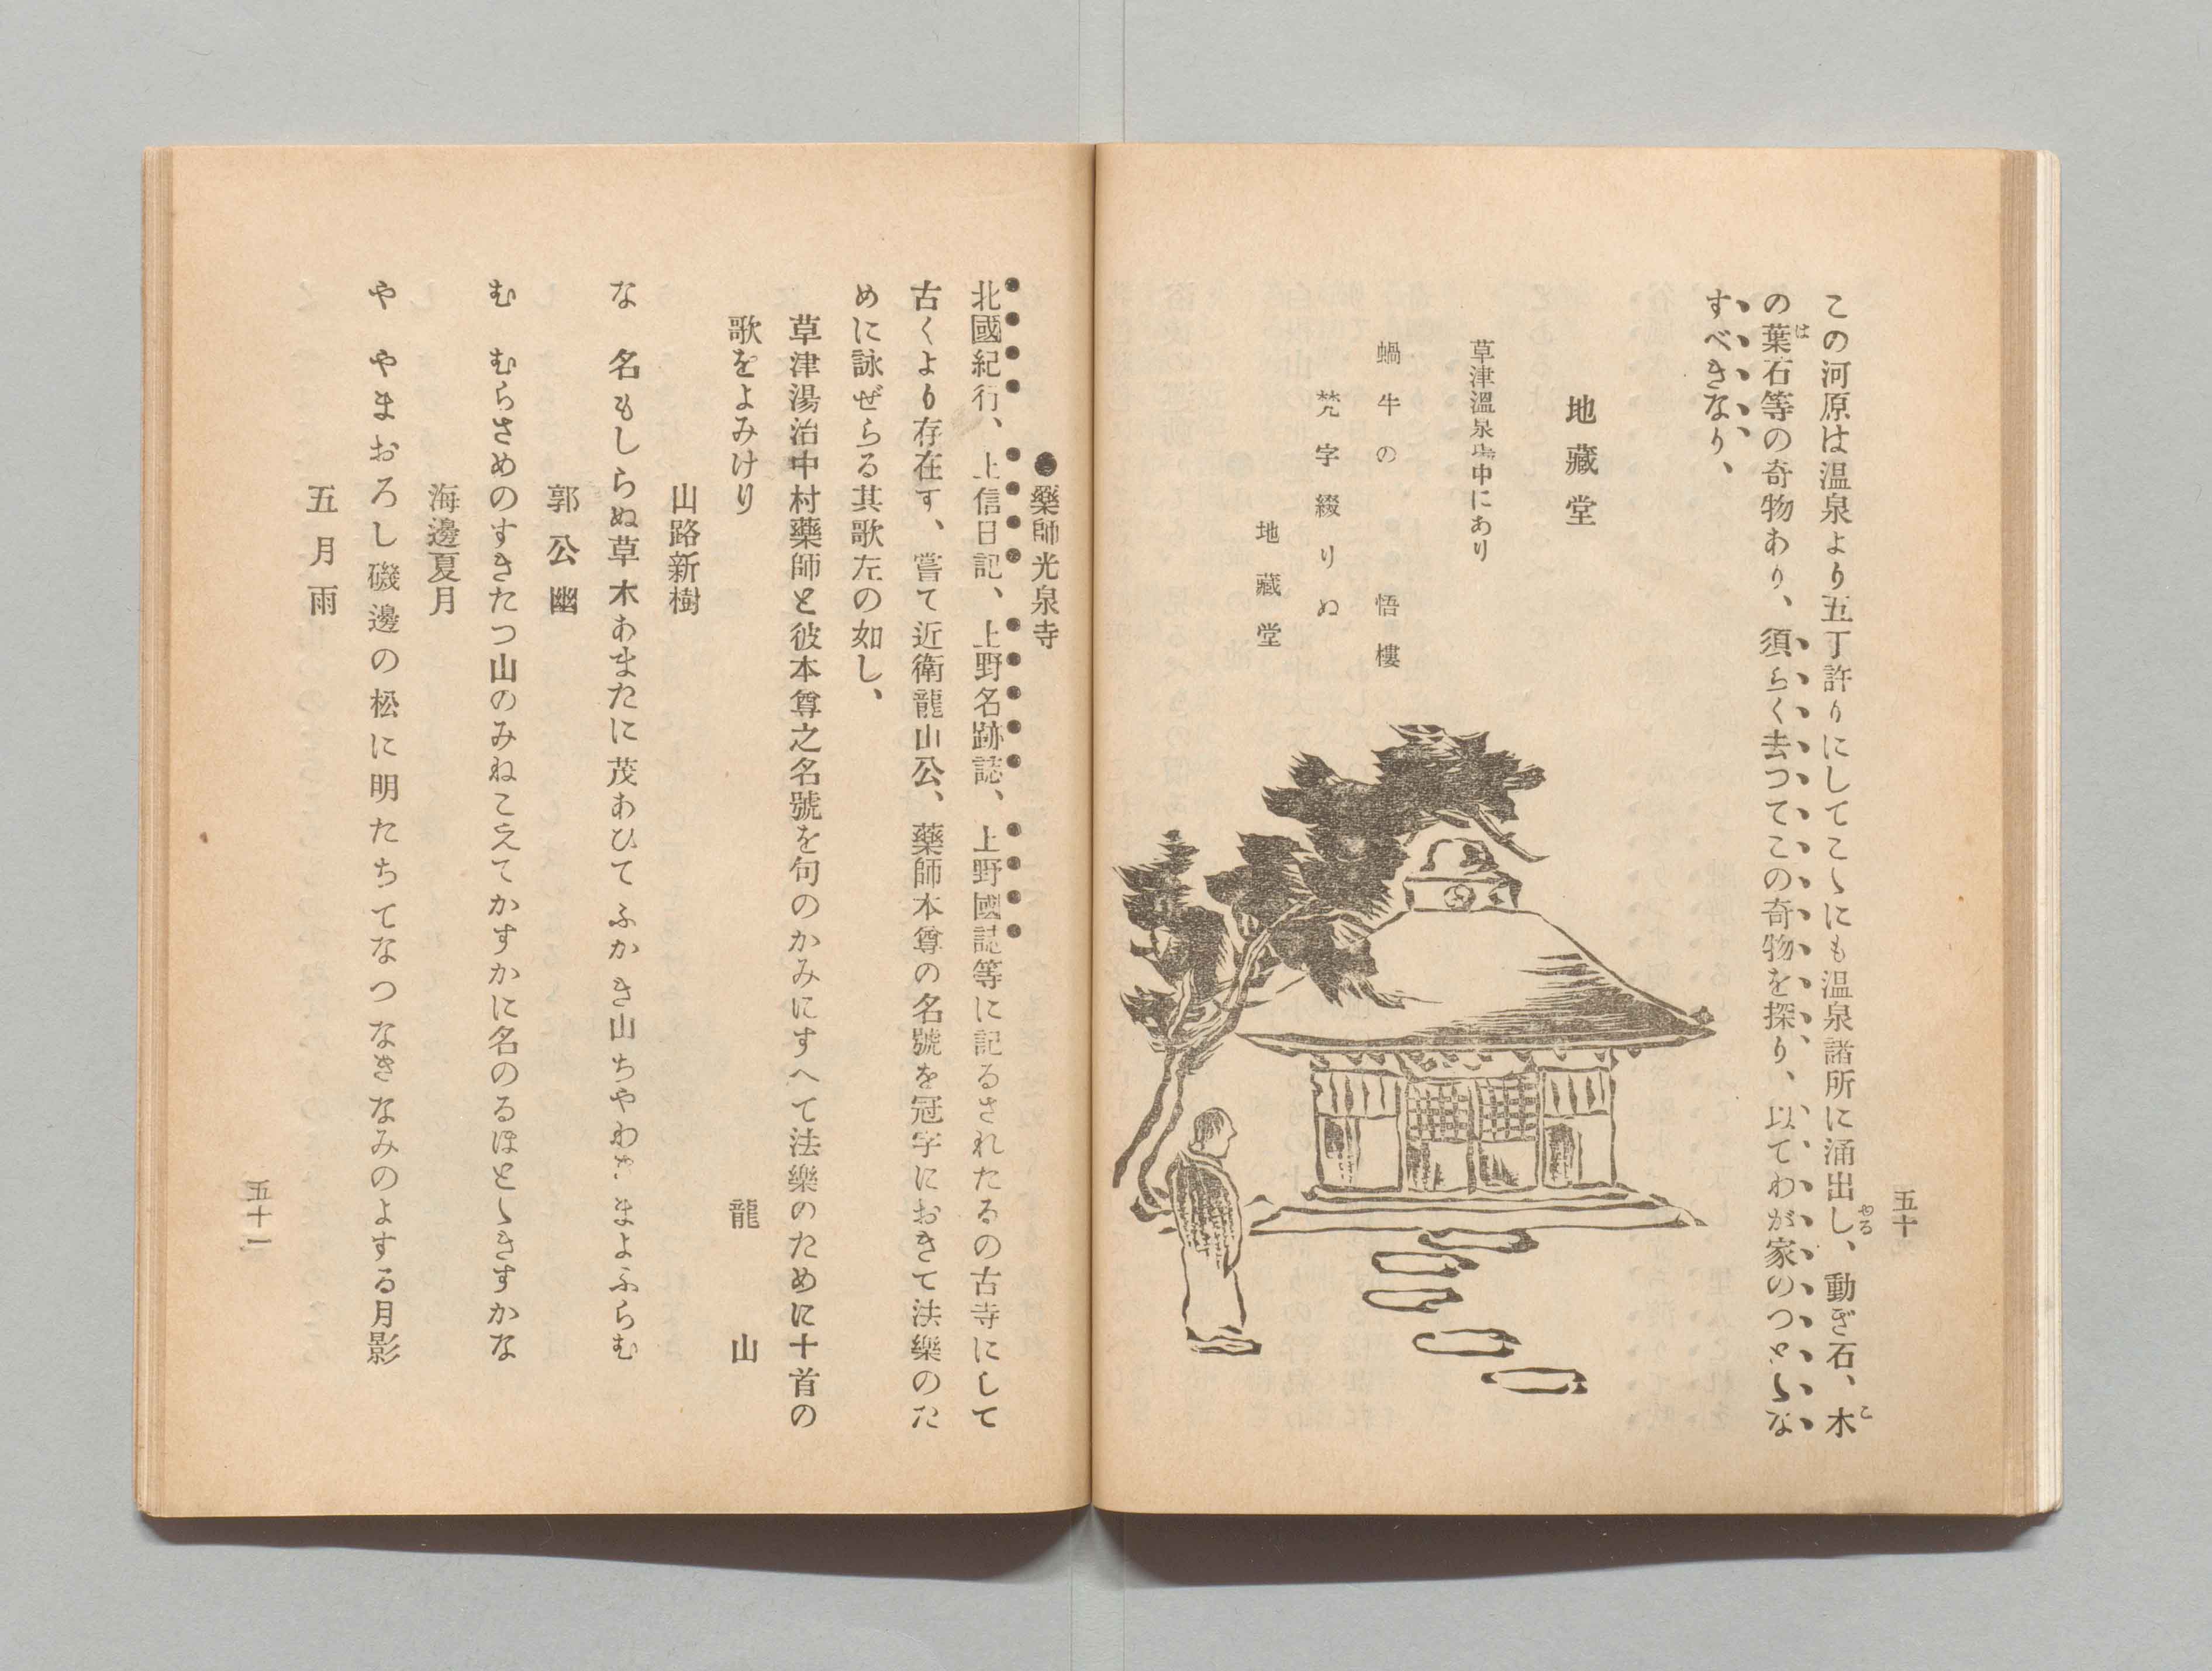 五十
この河原は温泉より五丁許りにしてこゝにも温泉諸所に涌出し、動ぎ石、木
の葉石等の奇物あり、須らく去つてこの奇物を探り、以てわが家のつとゝな
すべきなり、
地藏堂
草津溫泉場中にあり
蝸牛の悟樓
梵字綴りぬ
地藏堂
●藥師光泉寺
北國紀行、上信日記、上野名跡誌、上野國誌等に記るされたるの古寺にして
古くより存在す、嘗て近衛龍山公、藥師本尊の名號を冠字におきて法樂のた
めに詠ぜらる其歌左の如し、
草津湯治中村藥師と彼本尊之名號を句のかみにすへて法樂のために十首の
歌をよみけり 龍山
山路新樹
な 名もしらぬ草木あまたに茂あひてふかき山ちやわきまよふらむ
郭公幽
む むらさめのすきたつ山のみねこえてかすかに名のるほとゝきすかな
海邊夏月
や やまおろし磯邊の松に明たちてなつなきなみのよする月影
五月雨
五十一